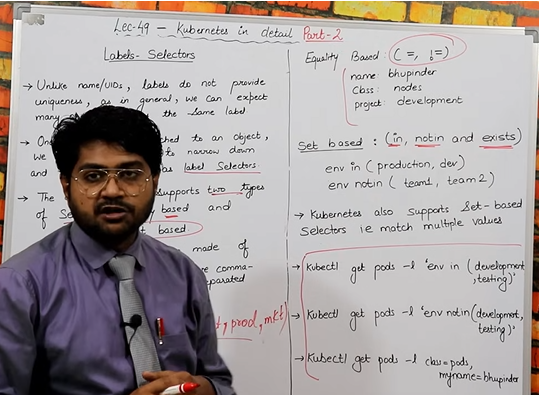 Lec-49 - Kubernetes in detail Part-2
Labels- Selectors
→ Unlike name/UIDs, labels do not provide
uniqueness, as in general, we can expect
many the same label
→ On ched to an object,
we to narrow down
and as label Selectors.
→ The supports two types
of based and
t based
made of
comma-
parated
prod, mkt)
Equality Based: ( =, != )
name: bhupinder
class: nodes
project: development
Set based : (in, notin and exists)
env in ( production, dev)
env notin ( team1, team 2 )
→ Kubernetes also Supports Set-based
Selectors ie match multiple values
→ Kubectl get pods -l 'env in (development
,testing)'
→ Kubectl get pods -l 'env notin (development,
testing)'
→ Kubectl get pods -l class=pods,
myname=bhupinder